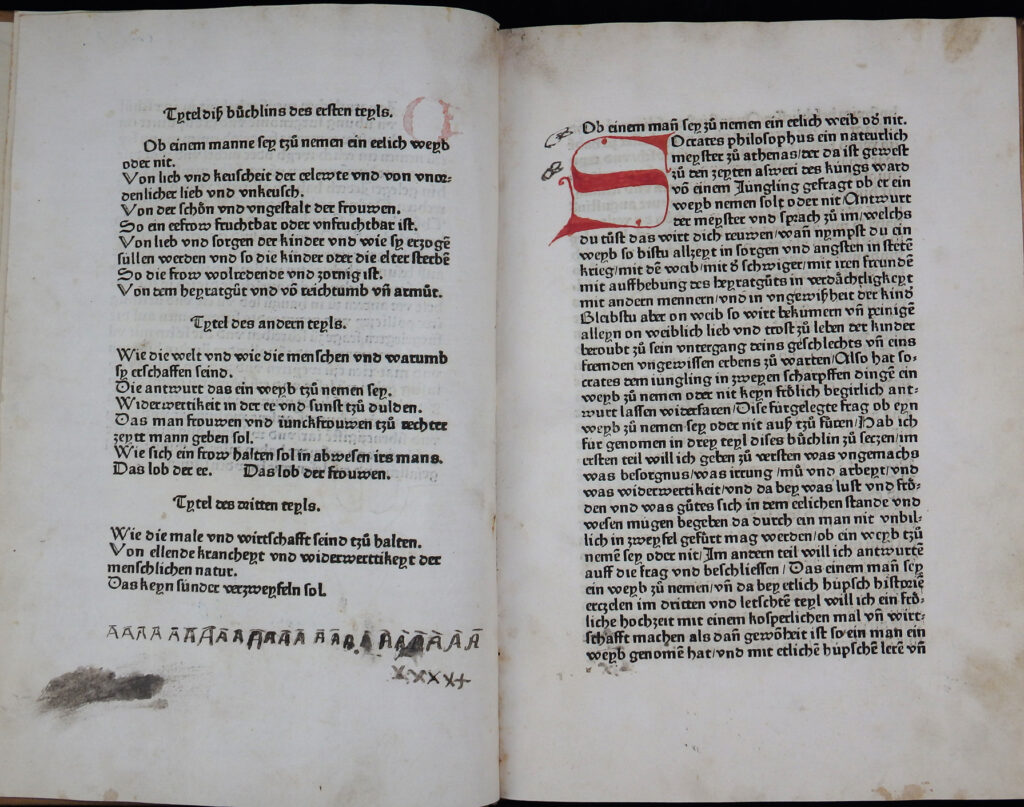 Tytel diß bůchlins des ersten teyls.
Ob einem manne sey tzů nemen ein eelich weyb
oder nit.
Von lieb vnd keuscheit der eelewte vnd von vnor⸗
denlicher lieb vnd vnkeusch.
Von der schön vnd vngestalt der frouwen.
So ein eefrow fruchtbar oder vnfruchtbar ist.
Von lieb vnd sorgen der kinder vnd wie sy erzogē
sullen werden vnd so die kinder oder die elter sterbē
So die frow wolredende vnd zornig ist.
Von dem heyratgůt vnd võ reichtumb vñ armůt.
Tytel des andern teyls.
Wie die welt vnd wie die menschen vnd warumb
sy erschaffen seind.
Die antwurt das ein weyb tzů nemen sey.
Widerwertikeit in der ee vnd sunst tzů dulden.
Das man frouwen vnd iunckfrouwen tzů rechter
zeytt mann geben sol.
Wie sich ein frow halten sol in abwesen irs mans.
Das lob der ee. Das lob der frouwen.
Tytel des dritten teyls.
Wie die male vnd wirtschafft seind tzů halten.
Von ellende kranckeyt vnd widerwerttikeyt der
menschlichen natur.
Das keyn sünder verzweyfeln sol.
Ob einem mañ sey zů nemen ein eelich weib od̄ nit.
Socrates philosophus ein nateurlich
meyster zů athenas/der da ist gewest
zů den zeyten asweri des kungs ward
võ einem Jungling gefragt ob er ein
weyb nemen solt oder nit/Antwurt
der meyster vnd sprach zů im/welchs
du tůst das wirt dich reuwen/wañ nympst du ein
weyb so bistu allzeyt in sorgen vnd angsten in stetē
krieg/mit dē weib/mit d̄ schwiger/mit iren freundē
mit auffhebung des heyratgůts in verdåchtligkeyt
mit andern mennern/vnd in vngewißheit der kind̄
Bleibstu aber on weib so wirt bekumern vñ peinigē
alleyn on weiblich lieb vnd trost zů leben der kinder
beroubt zů sein vntergang deins geschlechts vñ eins
fremden vngewissen erbens zů warten/Also hat so⸗
crates dem iungling in zweyen scharpffen dingē ein
weyb zů nemen oder nit keyn frőlich begirlich ant⸗
wurt lassen widerfaren/Dise fürgelegte frag ob eyn
weyb zů nemen sey oder nit auß tzů fůren/Hab ich
für genomen in drey teyl dises bůchlin zů seczen/im
ersten teil will ich geben zů versten was vngemachs
was besorgnus/was irrung/mů vnd arbeyt/vnd
was widerwertikeit/vnd da bey was lust vnd frő⸗
den vnd was gůtes sich in dem eelichen stande vnd
wesen mügen begeben da durch ein man nit vnbil⸗
lich in zweyfel gefürt mag werden/ob ein weyb tzů
nemē sey oder nit/Im andern teil will ich antwurtē
auff die frag vnd beschliessen/Das einem mañ sey
ein weyb zů nemen/vñ da bey etlich hüpsch historiē
erczelen im dritten vnd letschtē teyl will ich ein frő⸗
liche hochzeit mit einem kosperlichen mal vñ wirt⸗
schafft machen als dañ gewőheit ist so ein man ein
weyb genomē hat/vnd mit etlichē hüpschē lerē vñ